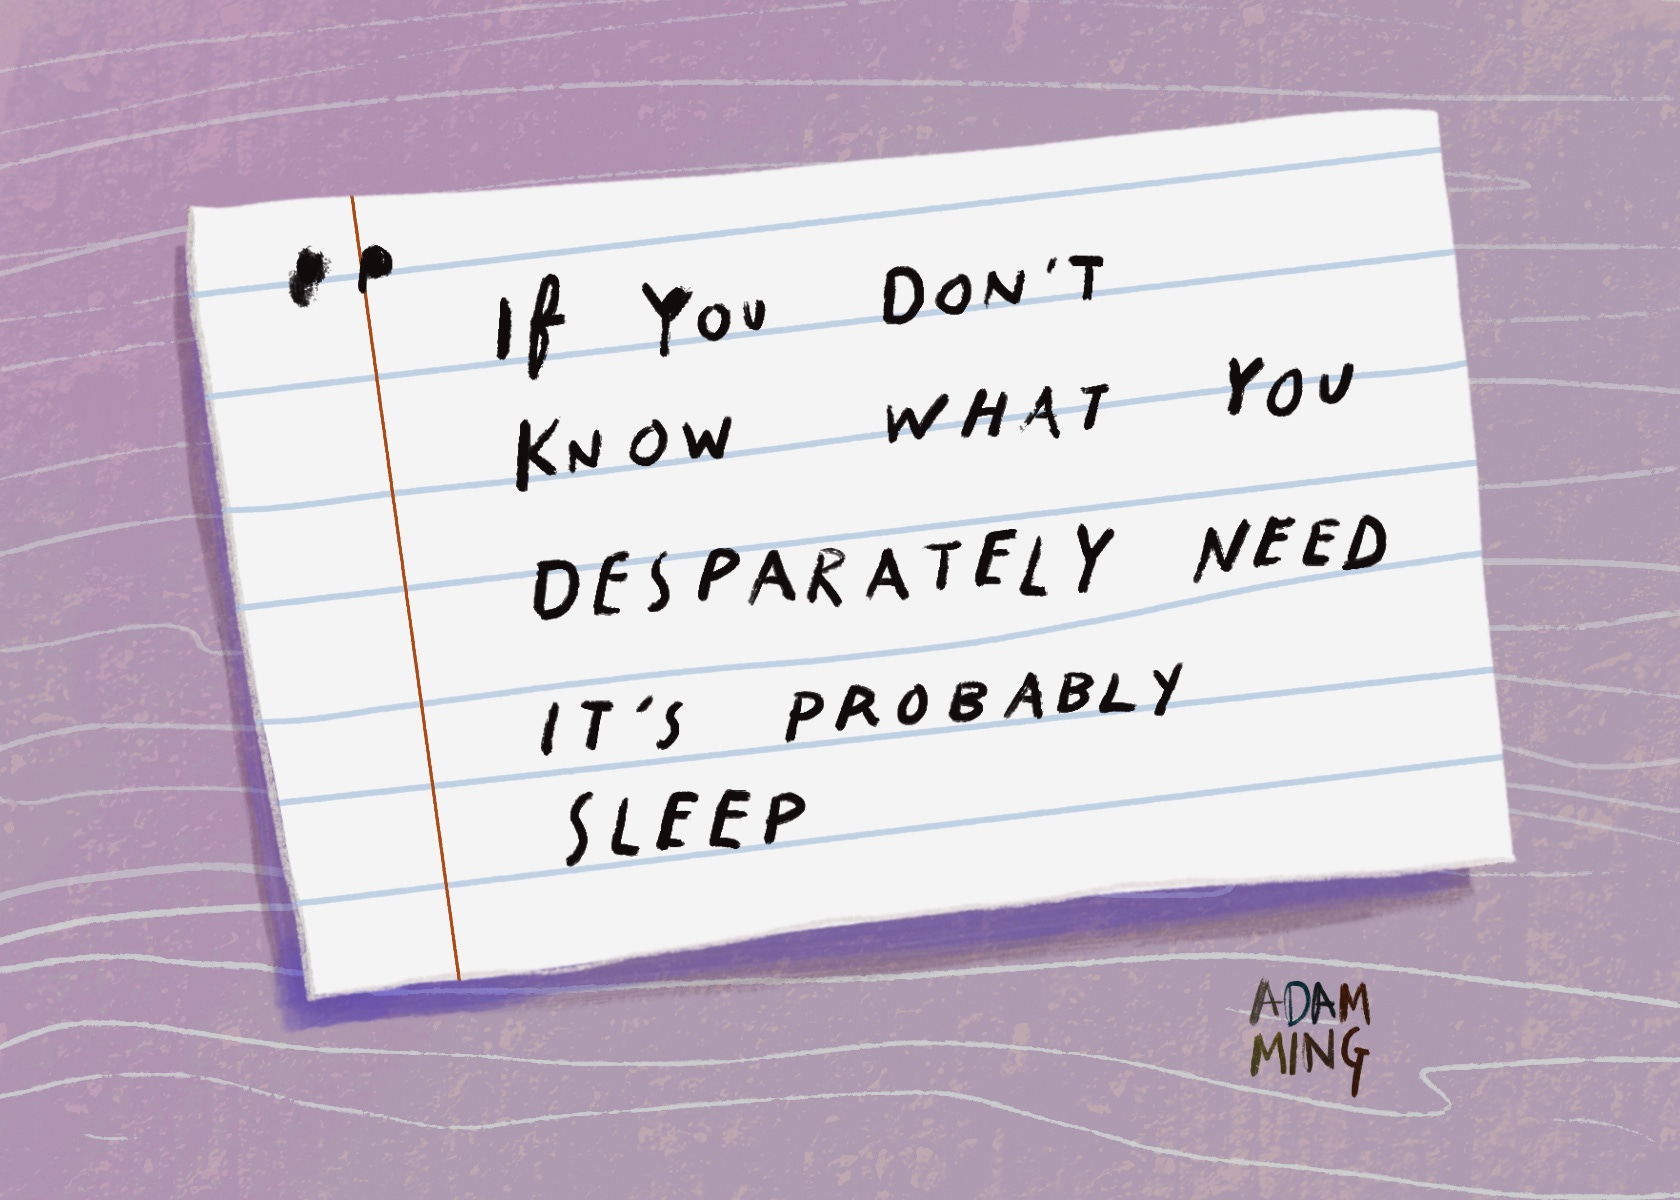 "If You DON'T
KNOW WHAT YOU
DESPARATELY NEED
IT'S PROBABLY
SLEEP
ADAM
MING